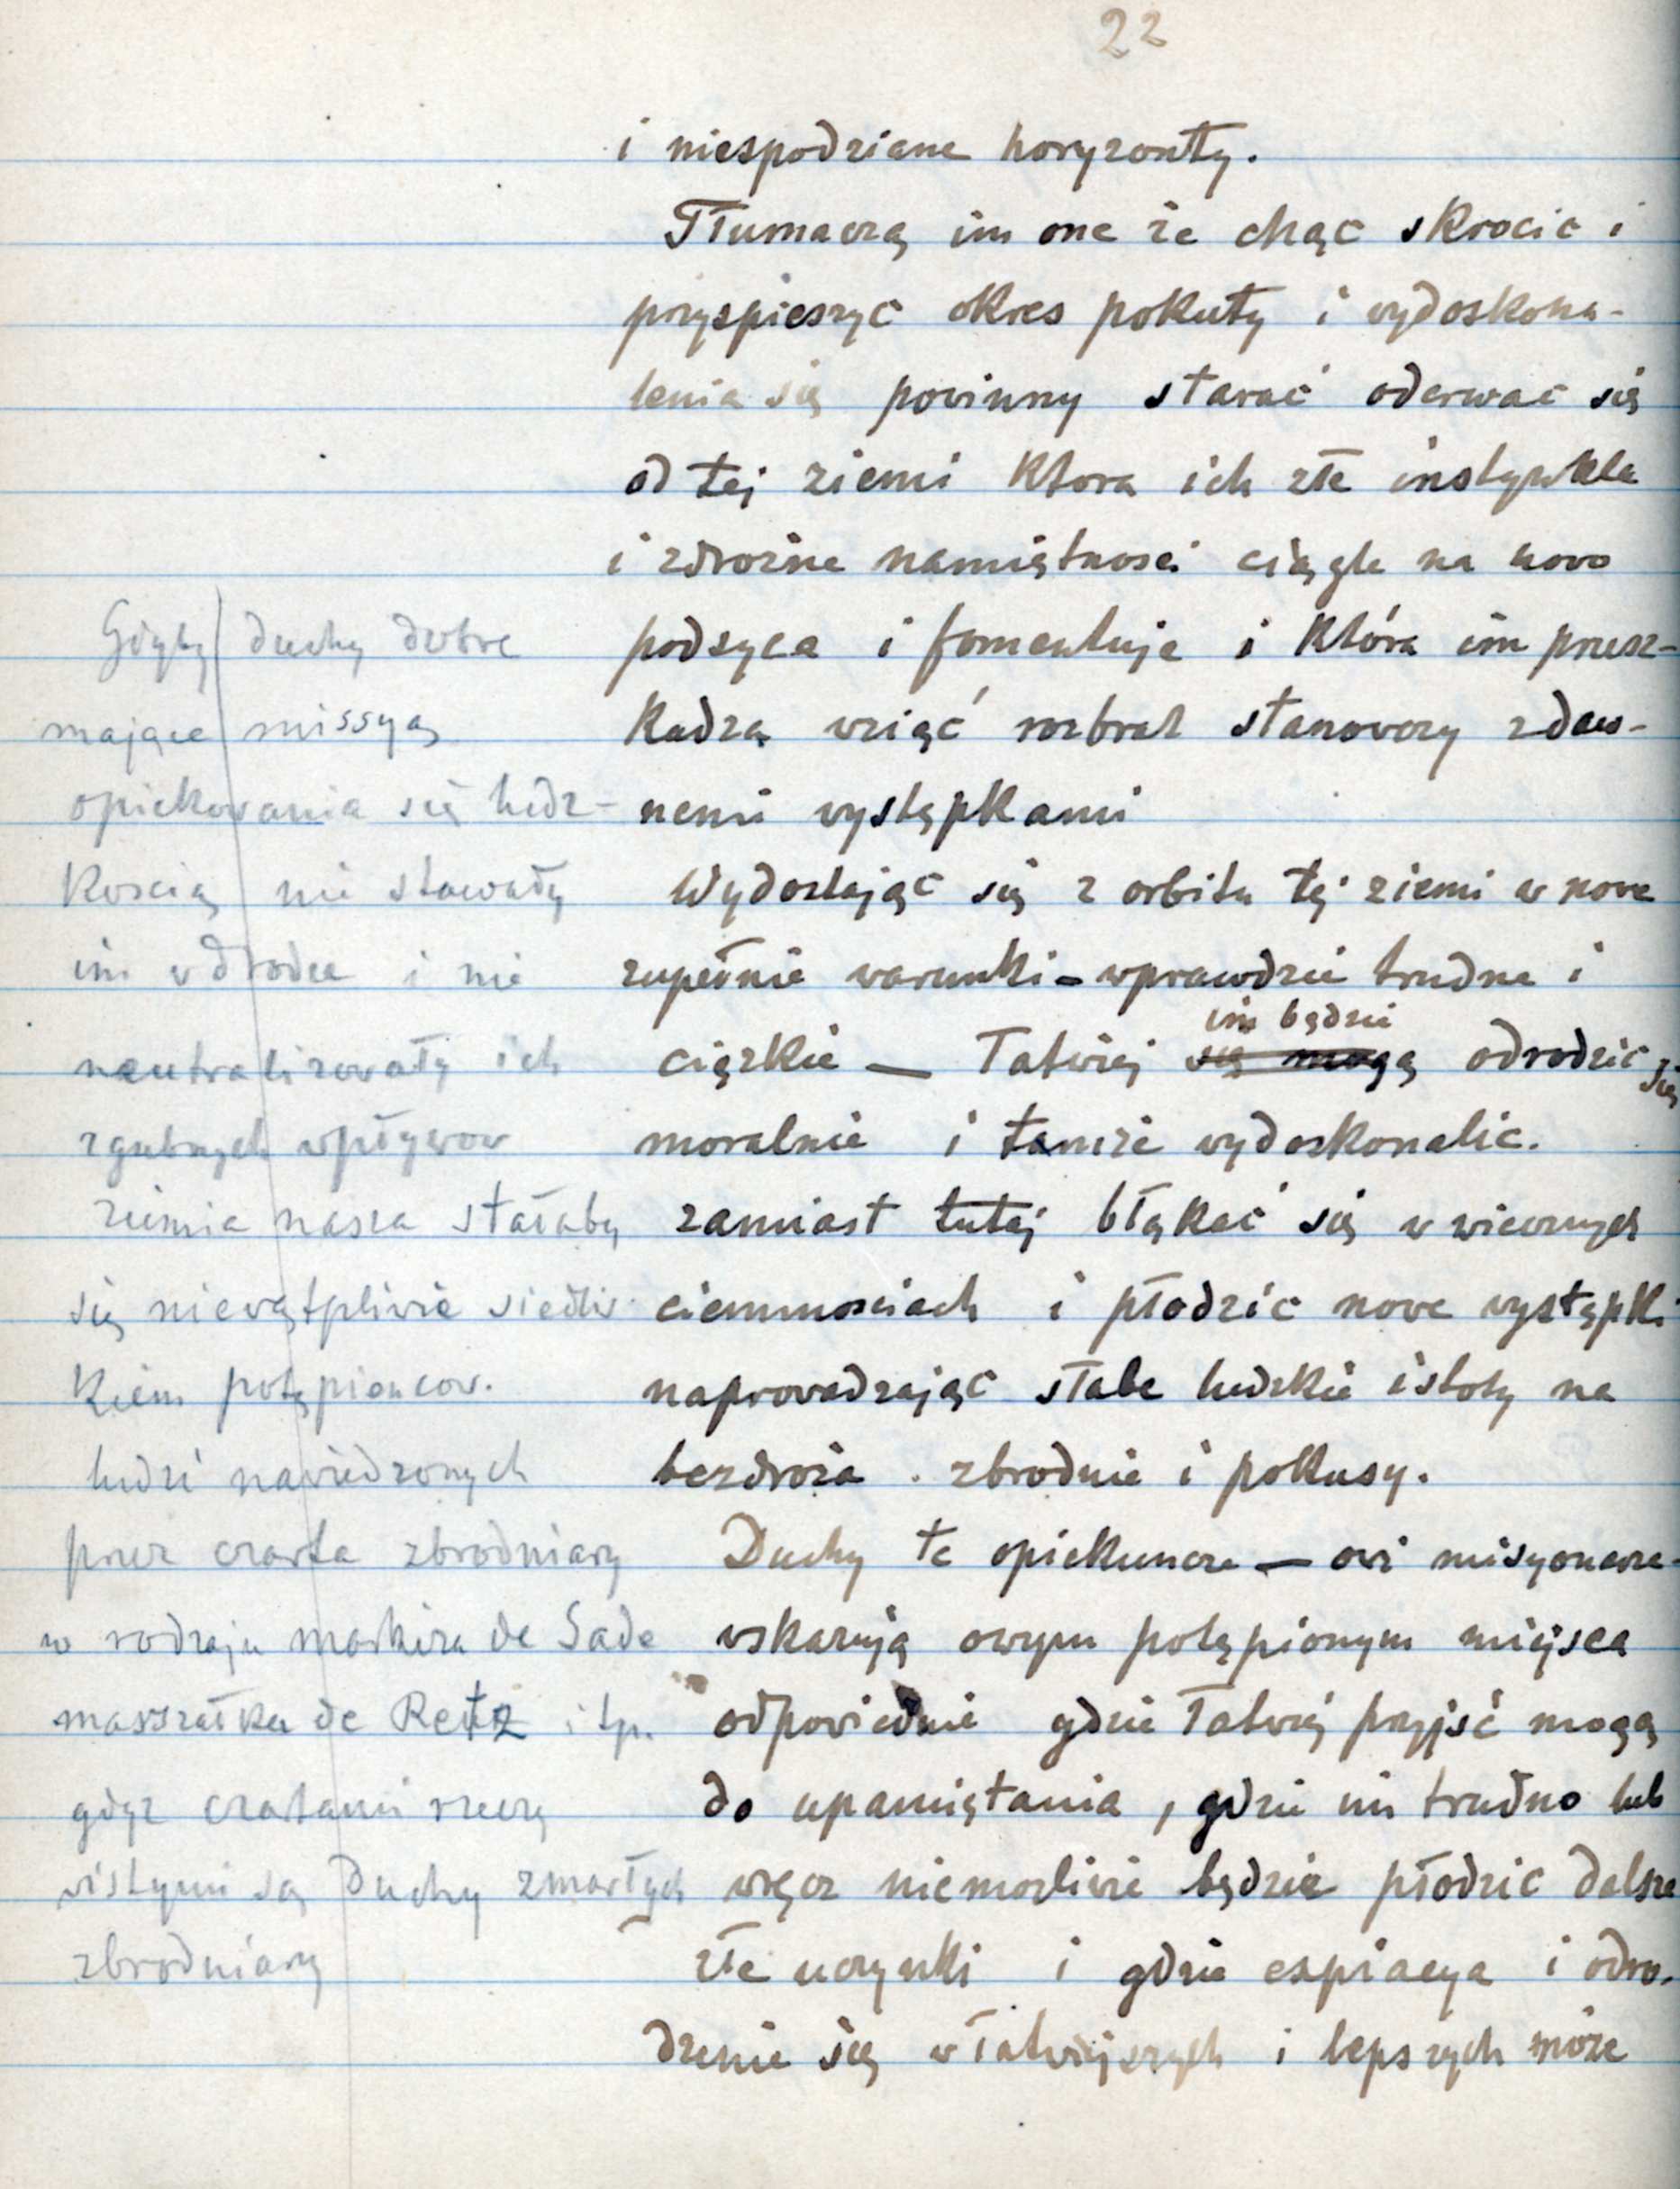 22
i niespodziane horyzonty.
Tłumaczą im one że chąc skrocic i
przyspieszyc okres pokuty i wydoskona-
lenia się powinny starać oderwac się
od tej ziemi Ktora ich złe instynkta
i zdrożne namiętnosci ciągle na nowo
podsyca i fomentuje i Która im przesz-
Kadza wziąć rozbrat stanowczy zdaw-
nemi występkami
Wydostając się z orbitu tej ziemi w nowe
zupełnie warunki – wprawdzie trudne i
im będzie
cięzkie — łatwiej się mogą odrodzic się
moralnie i tamże wydoskonalic.
zamiast tutej błąkać się w wiecznych
ciemnosciach i płodzic nowe występki
naprowadzając słabe ludzkie istoty na
bezdroża . zbrodnie i pokusy.
Duchy te opiekuncze — owi misyonarze-
wskazują owym potępionym miejsca
odpowiednie gdzie łatwiej przyjść mogą
do upamiętania , gdzie im trudno lub
wręcz niemozliwie będzie płodzic dalsze
złe uczynki i gdzie expiacya i odro-
dzenie się w łatwiejszych i lepszych może
Gdyby duchy dobre
mające missyą
opiekowania się ludz-
Koscią nie stawały
im w drodze i nie
neutralizowały ich
zgubnych wpływow
ziemia nasza stałaby
się niewątpliwie siedlis-
Kiem potępiencow.
ludzi nawiedzonych
przez czarta zbrodniarzy
w rodzaju markiza de Sade
marszałka de Retz i tp.
gdyz czartami rzeczy
wistymi są Duchy zmarłych
zbrodniarzy